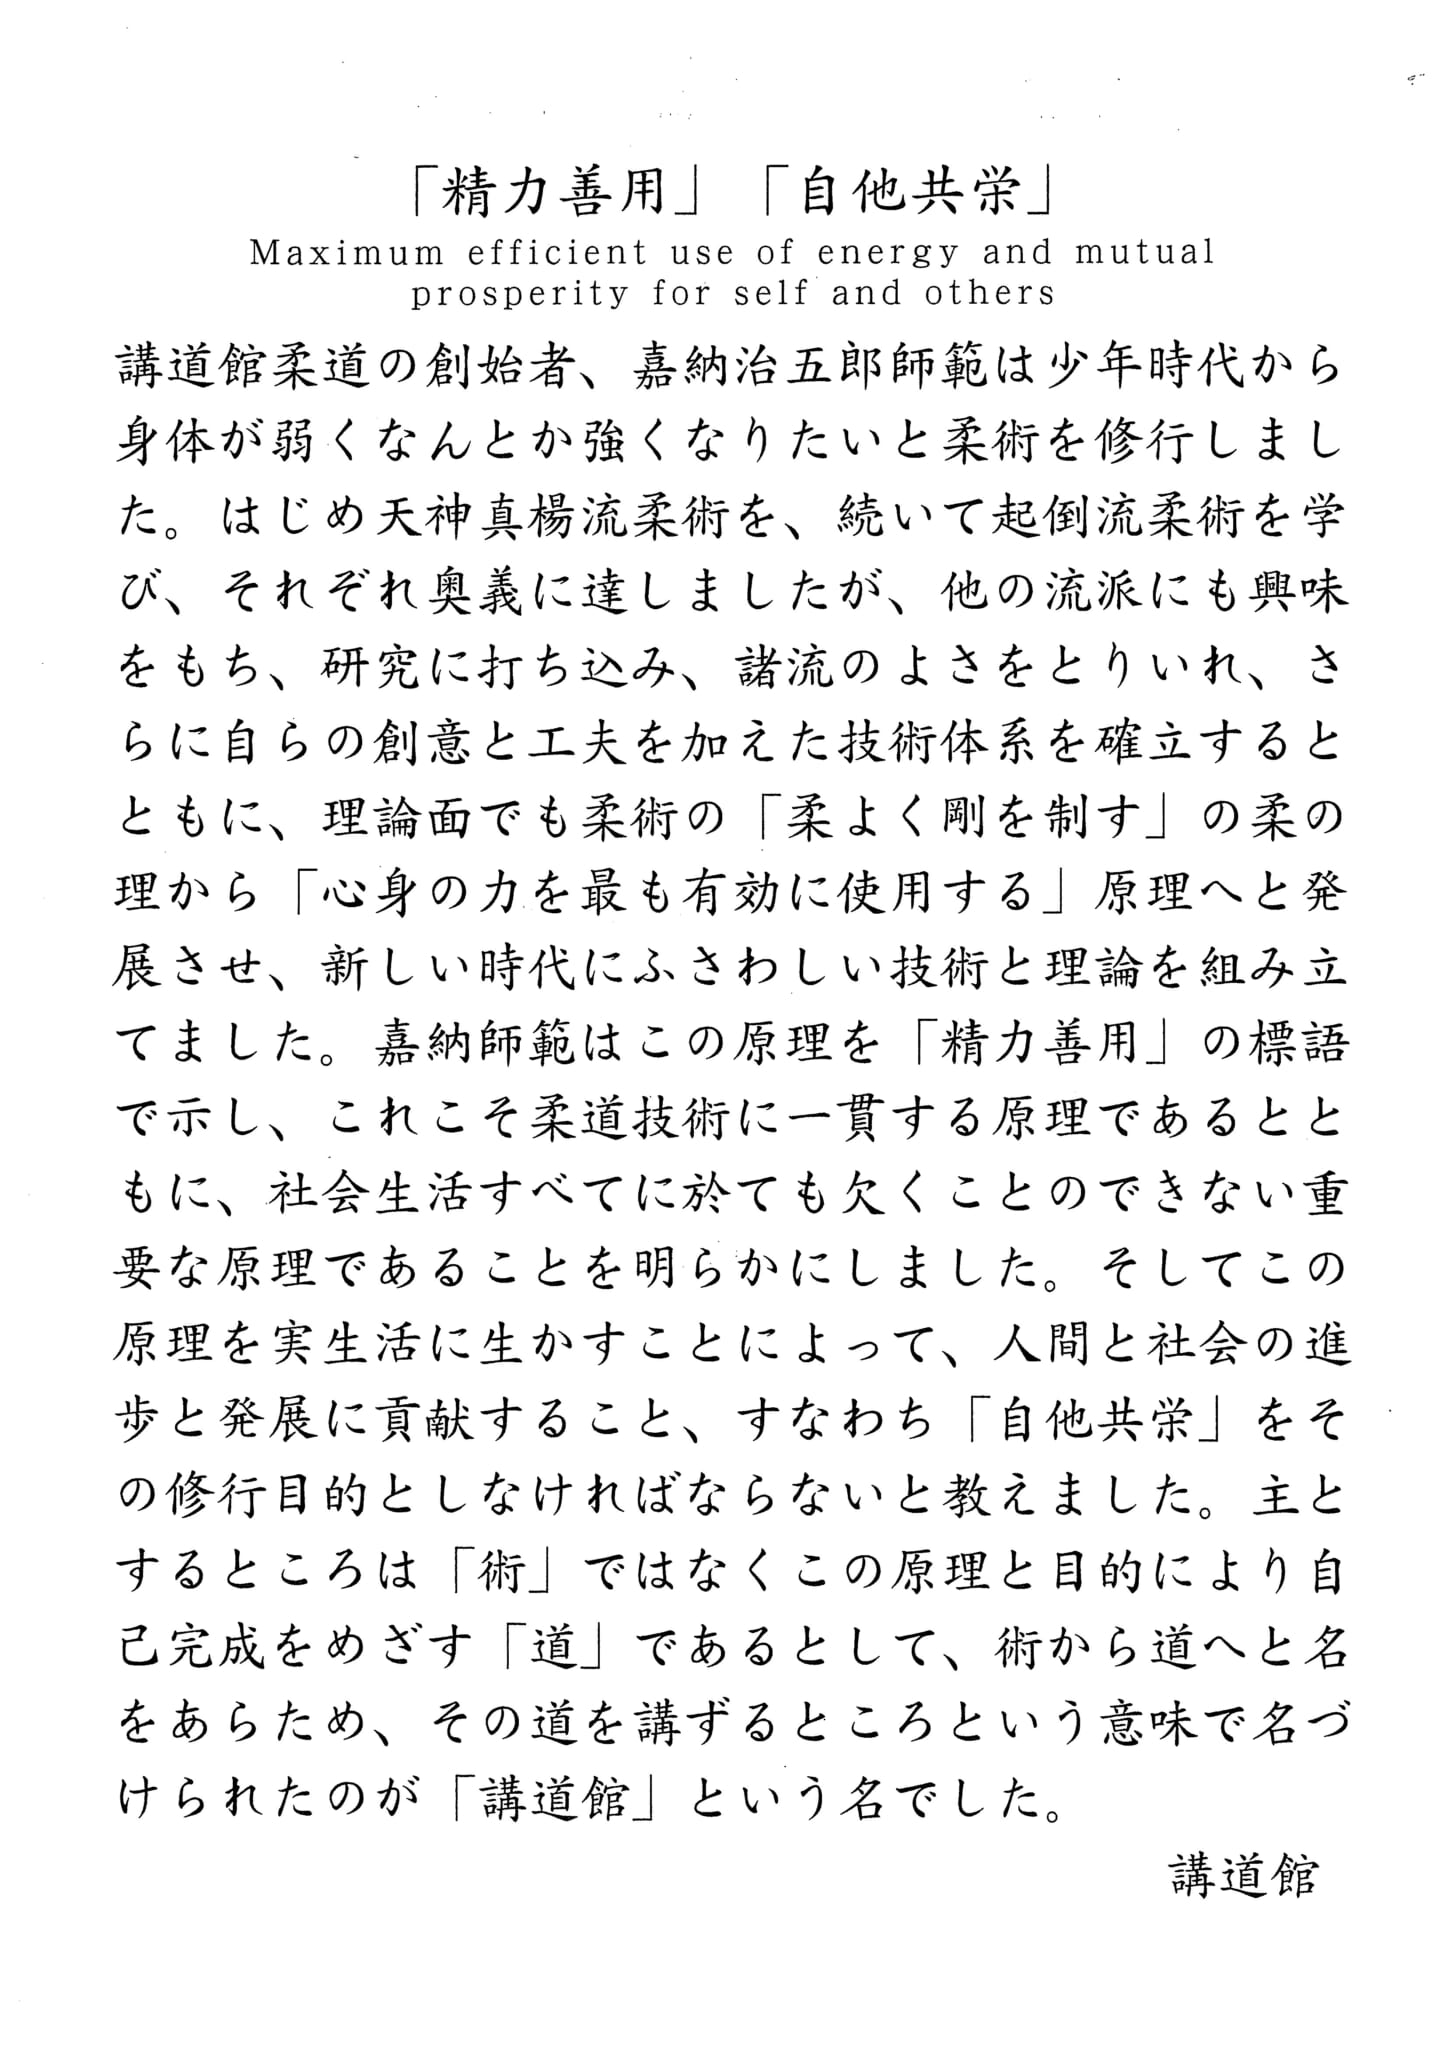 「精力善用」「自他共栄」
Maximum efficient use of energy and mutual
prosperity for self and others
講道館柔道の創始者、嘉納治五郎師範は少年時代から
身体が弱くなんとか強くなりたいと柔術を修行しまし
た。はじめ天神真楊流柔術を、続いて起倒流柔術を学
び、それぞれ奥義に達しましたが、他の流派にも興味
をもち、研究に打ち込み、諸流のよさをとりいれ、さ
らに自らの創意と工夫を加えた技術体系を確立すると
ともに、理論面でも柔術の「柔よく剛を制す」の柔の
理から「心身の力を最も有効に使用する」原理へと発
展させ、新しい時代にふさわしい技術と理論を組み立
てました。嘉納師範はこの原理を「精力善用」の標語
で示し、これこそ柔道技術に一貫する原理であるとと
もに、社会生活すべてに於ても欠くことのできない重
要な原理であることを明らかにしました。そしてこの
原理を実生活に生かすことによって、人間と社会の進
歩と発展に貢献すること、すなわち「自他共栄」をそ
の修行目的としなければならないと教えました。主と
するところは「術」ではなくこの原理と目的により自
己完成をめざす「道」であるとして、術から道へと名
をあらため、その道を講ずるところという意味で名づ
けられたのが「講道館」という名でした。
講道館